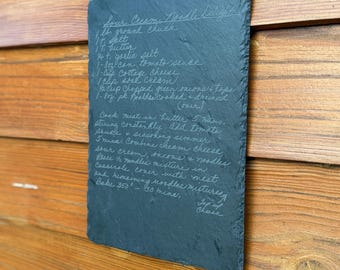 Sour Cream Noodle Bake
1 lb ground chuck
1 t. salt
1 T. butter
t. garlic salt
1 - 8 oz can tomato sauce
1 cup cottage cheese
1 cup sour cream
cup chopped green onions + tops
1 - 8 oz pk noodles cooked & drained
(over)
Cook meat in butter
stirring constantly. Add tomato
sauce & seasoning simmer
5 mins Combine cream cheese
sour cream, onions & noodles
Place ½ noodles mixture in
casserole cover with meat
and remaining noodles mixture
Bake 350° - 30 mins.